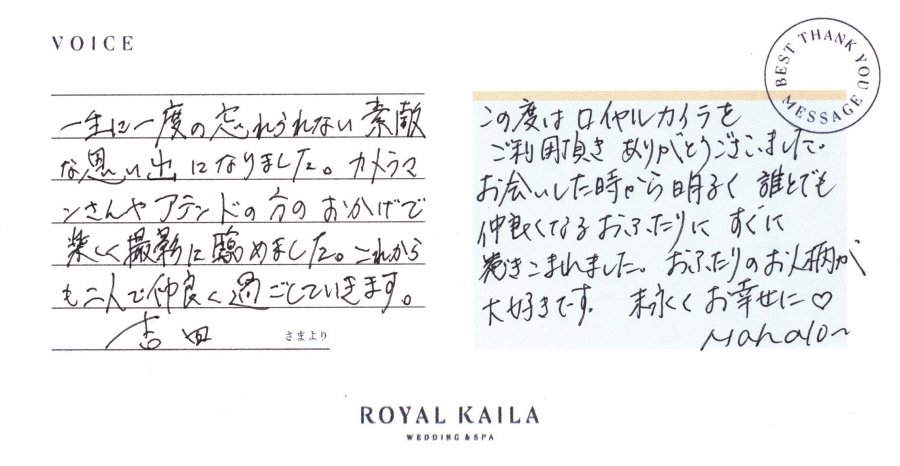 VOICE
一生に一度の忘れられない素敵
な思い出になりました。カメラマ
ンさんやアテンドの方のおかげで
楽しく撮影に臨めました。これから
も二人で仲良く過ごしていきます。
吉田 さまより
BEST THANK YOU MESSAGE
この度はロイヤルカイラを
ご利用頂きありがとうございまして。
お会いした時から明るく誰とでも
仲良くなるおふたりにすぐに
巻きこまれました。おふたりのお人柄が
大好きです。末永くお幸せに♡
Mahalo~
ROYAL KAILA
WEDDING & SPA